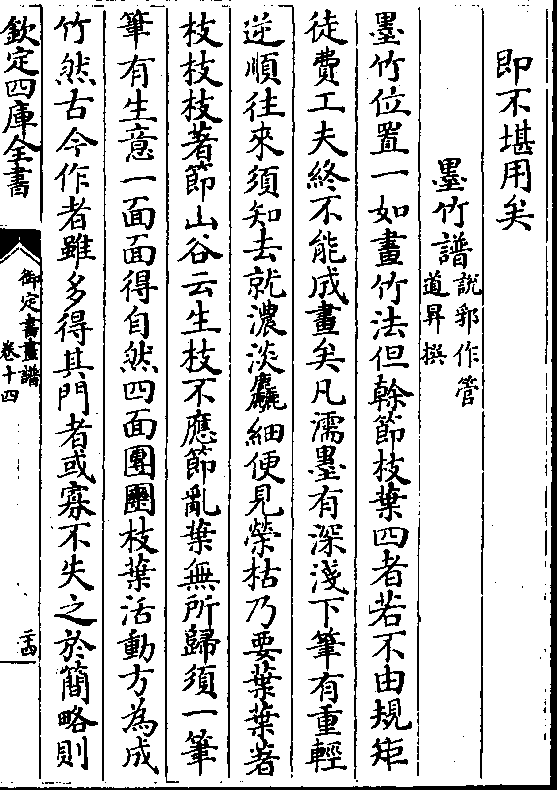 即不堪用矣
墨竹譜
說郛作管
道昇撰
墨竹位置一如畫竹法但榦節枝葉四者若不由規矩
徒費工夫終不能成畫矣凡濡墨有深淺下筆有重輕
逆順往來須知去就濃淡麤細便見榮枯乃要葉葉著
枝枝枝著節山谷云生枝不應節亂葉無所歸須一筆
筆有生意一面面得自然四面團團枝葉活動方為成
竹然古今作者雖多得其門者或寡不失之於簡略則
欽定四庫全書
御定書畫譜
卷十四